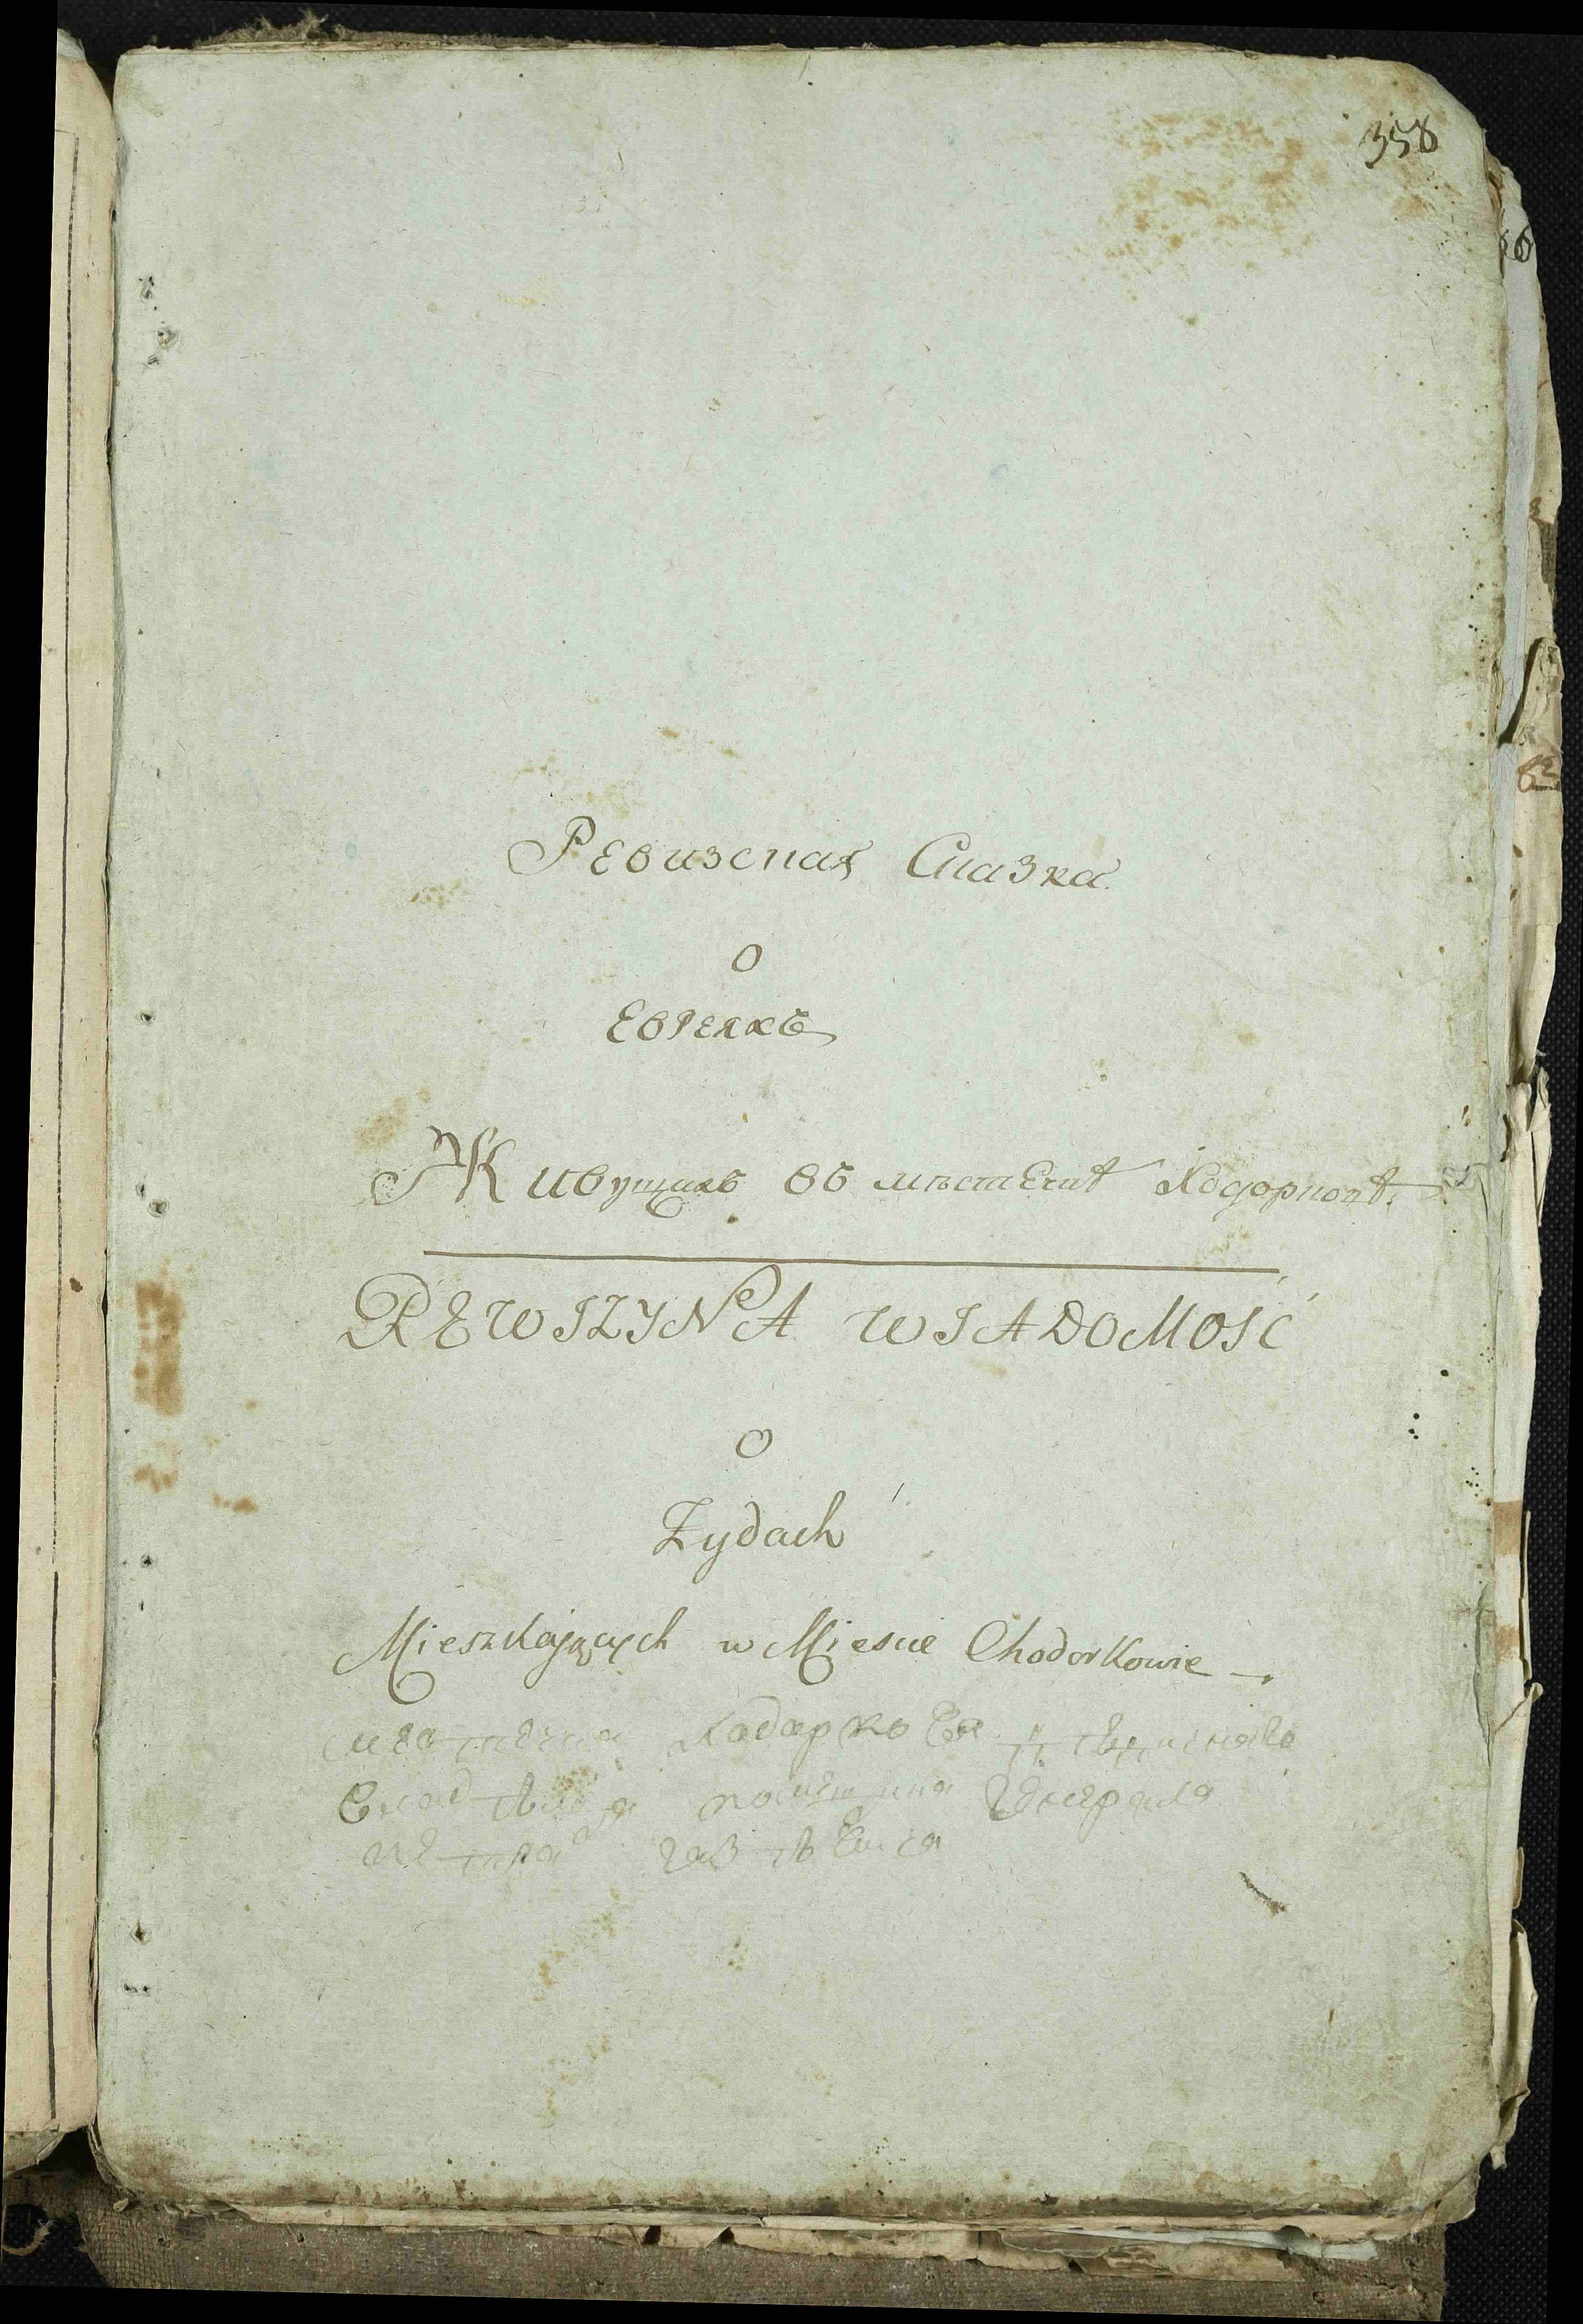 358
Ревизская Сказка
О
Евреяхъ
Живущихъ въ мѣстечкѣ Ходорковѣ.
REWIZYNA WIADOMOSĆ
O
Żydach
Mieszkających w Miescie Chodorkowie
местечка Хадаркова
генерала